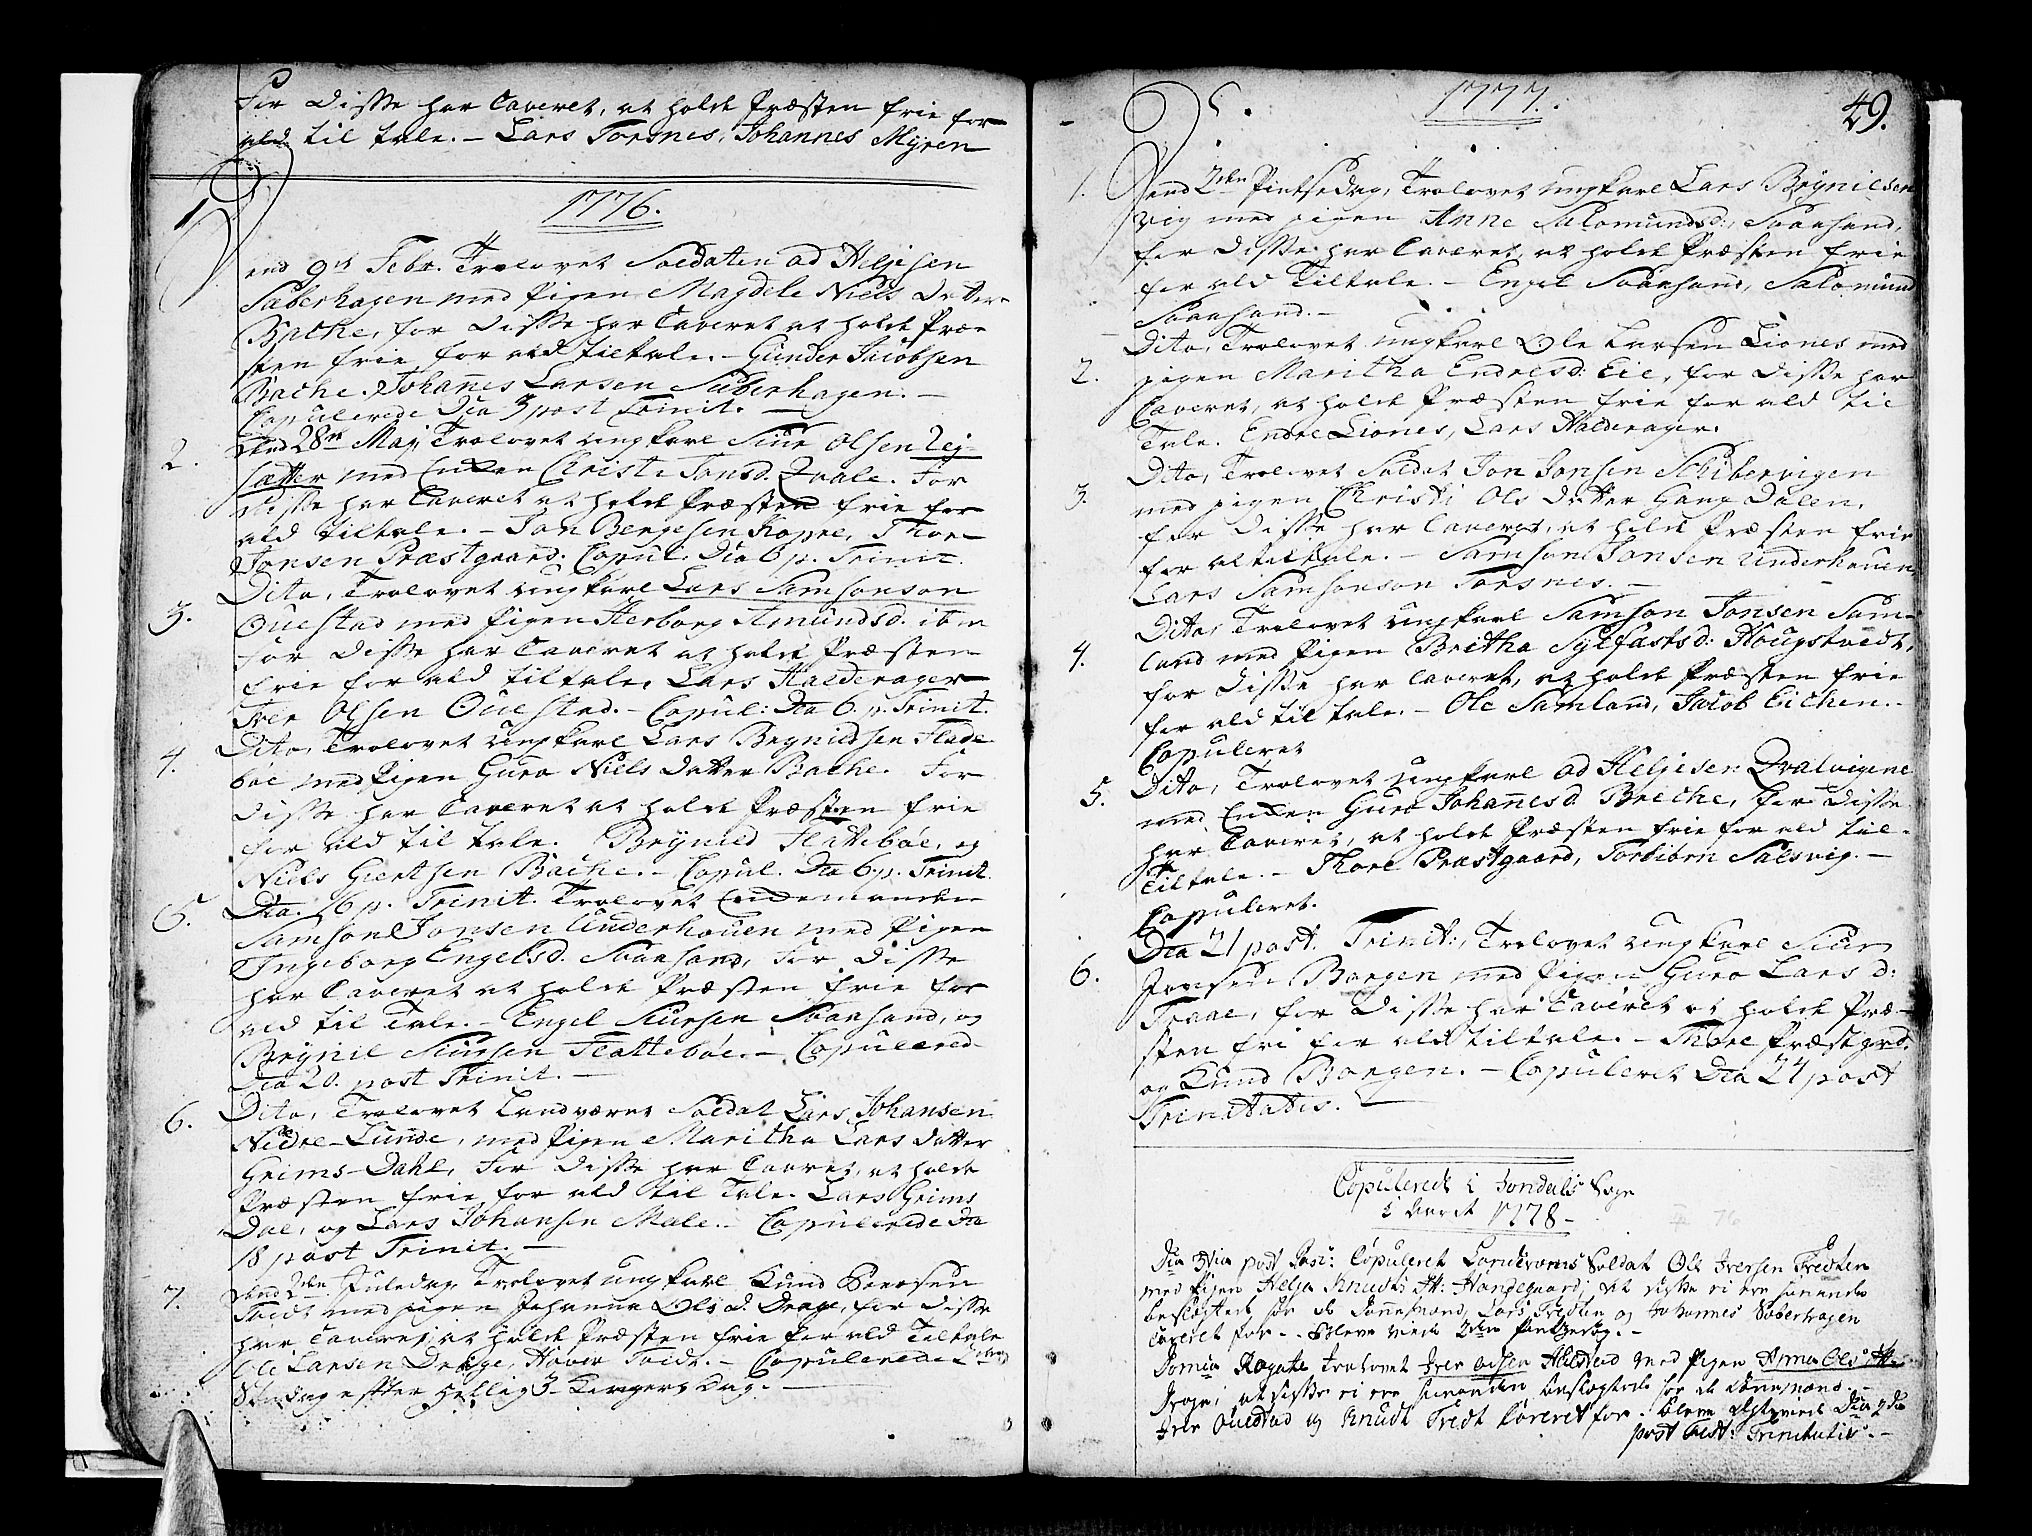 For Disse har Caveret, at holde Præsten frie for
ald til tale. – Lars Torsnes, Johannes Myren
1776.
1. Dend 9de Febr. Trolovet Soldaten Ad Heljesen
Saberhagen med Pigen Magdele Niels Datter
Bache, for Disse har Caveret at holde Præ-
sten frie for ald tiltale. – Gunder Jacobsen
Bache. Johannes Larsen Saberhagen. –
Copulerede Dca 3 post Trinit. –
2. Dend 28de Maj Trolovet ungkarl Siur Olsen Lej-
sætter med Enken Christi Jonsd. Qvale. For
Disse har Caveret at holde Præsten frie for
ald tiltale. – Jon Bergesen Kopre, Thore
Jonsen Præstgaard. Copul: Dca 6 p. Trinit.
3. Dito, Trolovet ungkarl Lars Samsonson
Ouestad med Pigen Herborg Amundsd. ibm
for Disse har Caveret at holde Præsten
frie for ald tiltale, Lars Halderager
Iver Olsen Ouestad. – Copul: Dca 6. p. Trinit.
4. Dito, Trolovet ungkarl Lars Brynildsen Flade-
bøe med Pigen Guro Niels Datter Bache. For
Disse har Caveret at holde Præsten frie
for ald til tale. Brynild Flattebøe, og
Niels Giertsen Bache. – Copul. Dca 6 p. Trinit.
5. Dca. 16 p. Trinit. Trolovet Enkemanden
Samson Jonsen Underhouen med Pigen
Ingeborg Engelsd. Svaasand, for Disse
har Caveret at holde Præsten frie for
ald til Tale. – Engel Siursen Svaasand, og
Brynil Siursen Flattebøe. – Copulered
Dca 20. post Trinit. –
6. Dito, Trolovet Landværns Soldat Lars Johansen
Nedre-Lunde, med Pigen Maritha Lars Datter
Grims-Dahl, for Disse har Caveret, at holde
Præsten frie for ald til Tale. Lars Grims
Dal, og Lars Johansen Male. – Copulerede Dca
18 post Trinit. –
7. Dend 2den Juledag Trolovet ungkarl Knud Persen
Tvedt med pigen Johanna Ols d. Drage, for Disse
har Caveret, at holde Præsten frie for ald Tiltale
Ole Larsen Drage, Tvedt. – Copulerede 2den
Søndag efter Hellig 3 Kongers Dag. –
1777.
49.
1. Dend 2den Pintsedag, Trolovet ungkarl Lars Brynilsen
Vig med pigen Anne Salomunds d:, Svaasand,
for Disse har Caveret, at holde Præsten frie
for ald Tiltale. – Engel Svaasand, Salomund
Svaasand. –
2. Dito, Trolovet ungkarl Ole Larsen Liones med
pigen Maritha Endresd: Eie, for Disse har
Caveret, at holde Præsten frie for ald til
Tale. Endre Liones, Lars Halderager.
3. Dito, Trolovet Soldat Jon Jonsen Schibervigen
med pigen Christi Ols Datter Gang Dalen,
for Disse har Caveret, at holde Præsten frie
for al tiltale. – Samson Jonsen Underhouen,
Lars Samsonson Torsnes. –
4. Dito, Trolovet ungkarl Samson Jonsen Sam-
land med Pigen Britha Sylfastsd: Hougstvedt,
for Disse har Caveret, at holde Præsten frie
for ald til tale. – Ole Samland, Jacob Eichen. –
Copuleret
5. Dito, Trolovet ungkarl Ad Heljesen Qvalvigene
med Enken Guro Johannesd. Breche, for Disse
har Caveret, at holde Præsten frie for ald til-
Tiltale. – Thore Præstgaard, Torbiørn Salsvig. –
Copuleret.
6. Dca 21 post. Trinit:, Trolovet ungkarl Siur
Jonsen Borgen med Pigen Guro Lars d:
Traae, for Disse har Caveret at holde Præ-
sten fri for ald tiltale. – Thore Præstgrd.
og Knud Borgen. – Copuleret Dca 24 post
Trinitatis. –
Copuleret i Jondals Sogn
i Aaret 1778 –
76
Dca 3tia post Pasc: Copuleret Landværns Soldat Ole Iversen Tredten
med Pigen Helga Knudts Dt: Handegaard, at disse ei ere hinanden
beslægtede, for de Dannemænd, Lars Tredten og Johannes Saberhagen
Caveret for. – Bleve viede 2den Pintzedag. –
Domca Rogate Trolovet Iver Olsen med Pigen Anna Ols Dt:
Drage, at disse ei ere hinanden beslægtede for de Dannemænd –
Iver Ouestad og Knudt Tvedt Caveret for. bleve viede Dca 2da
post Fest: Trinitatis. –